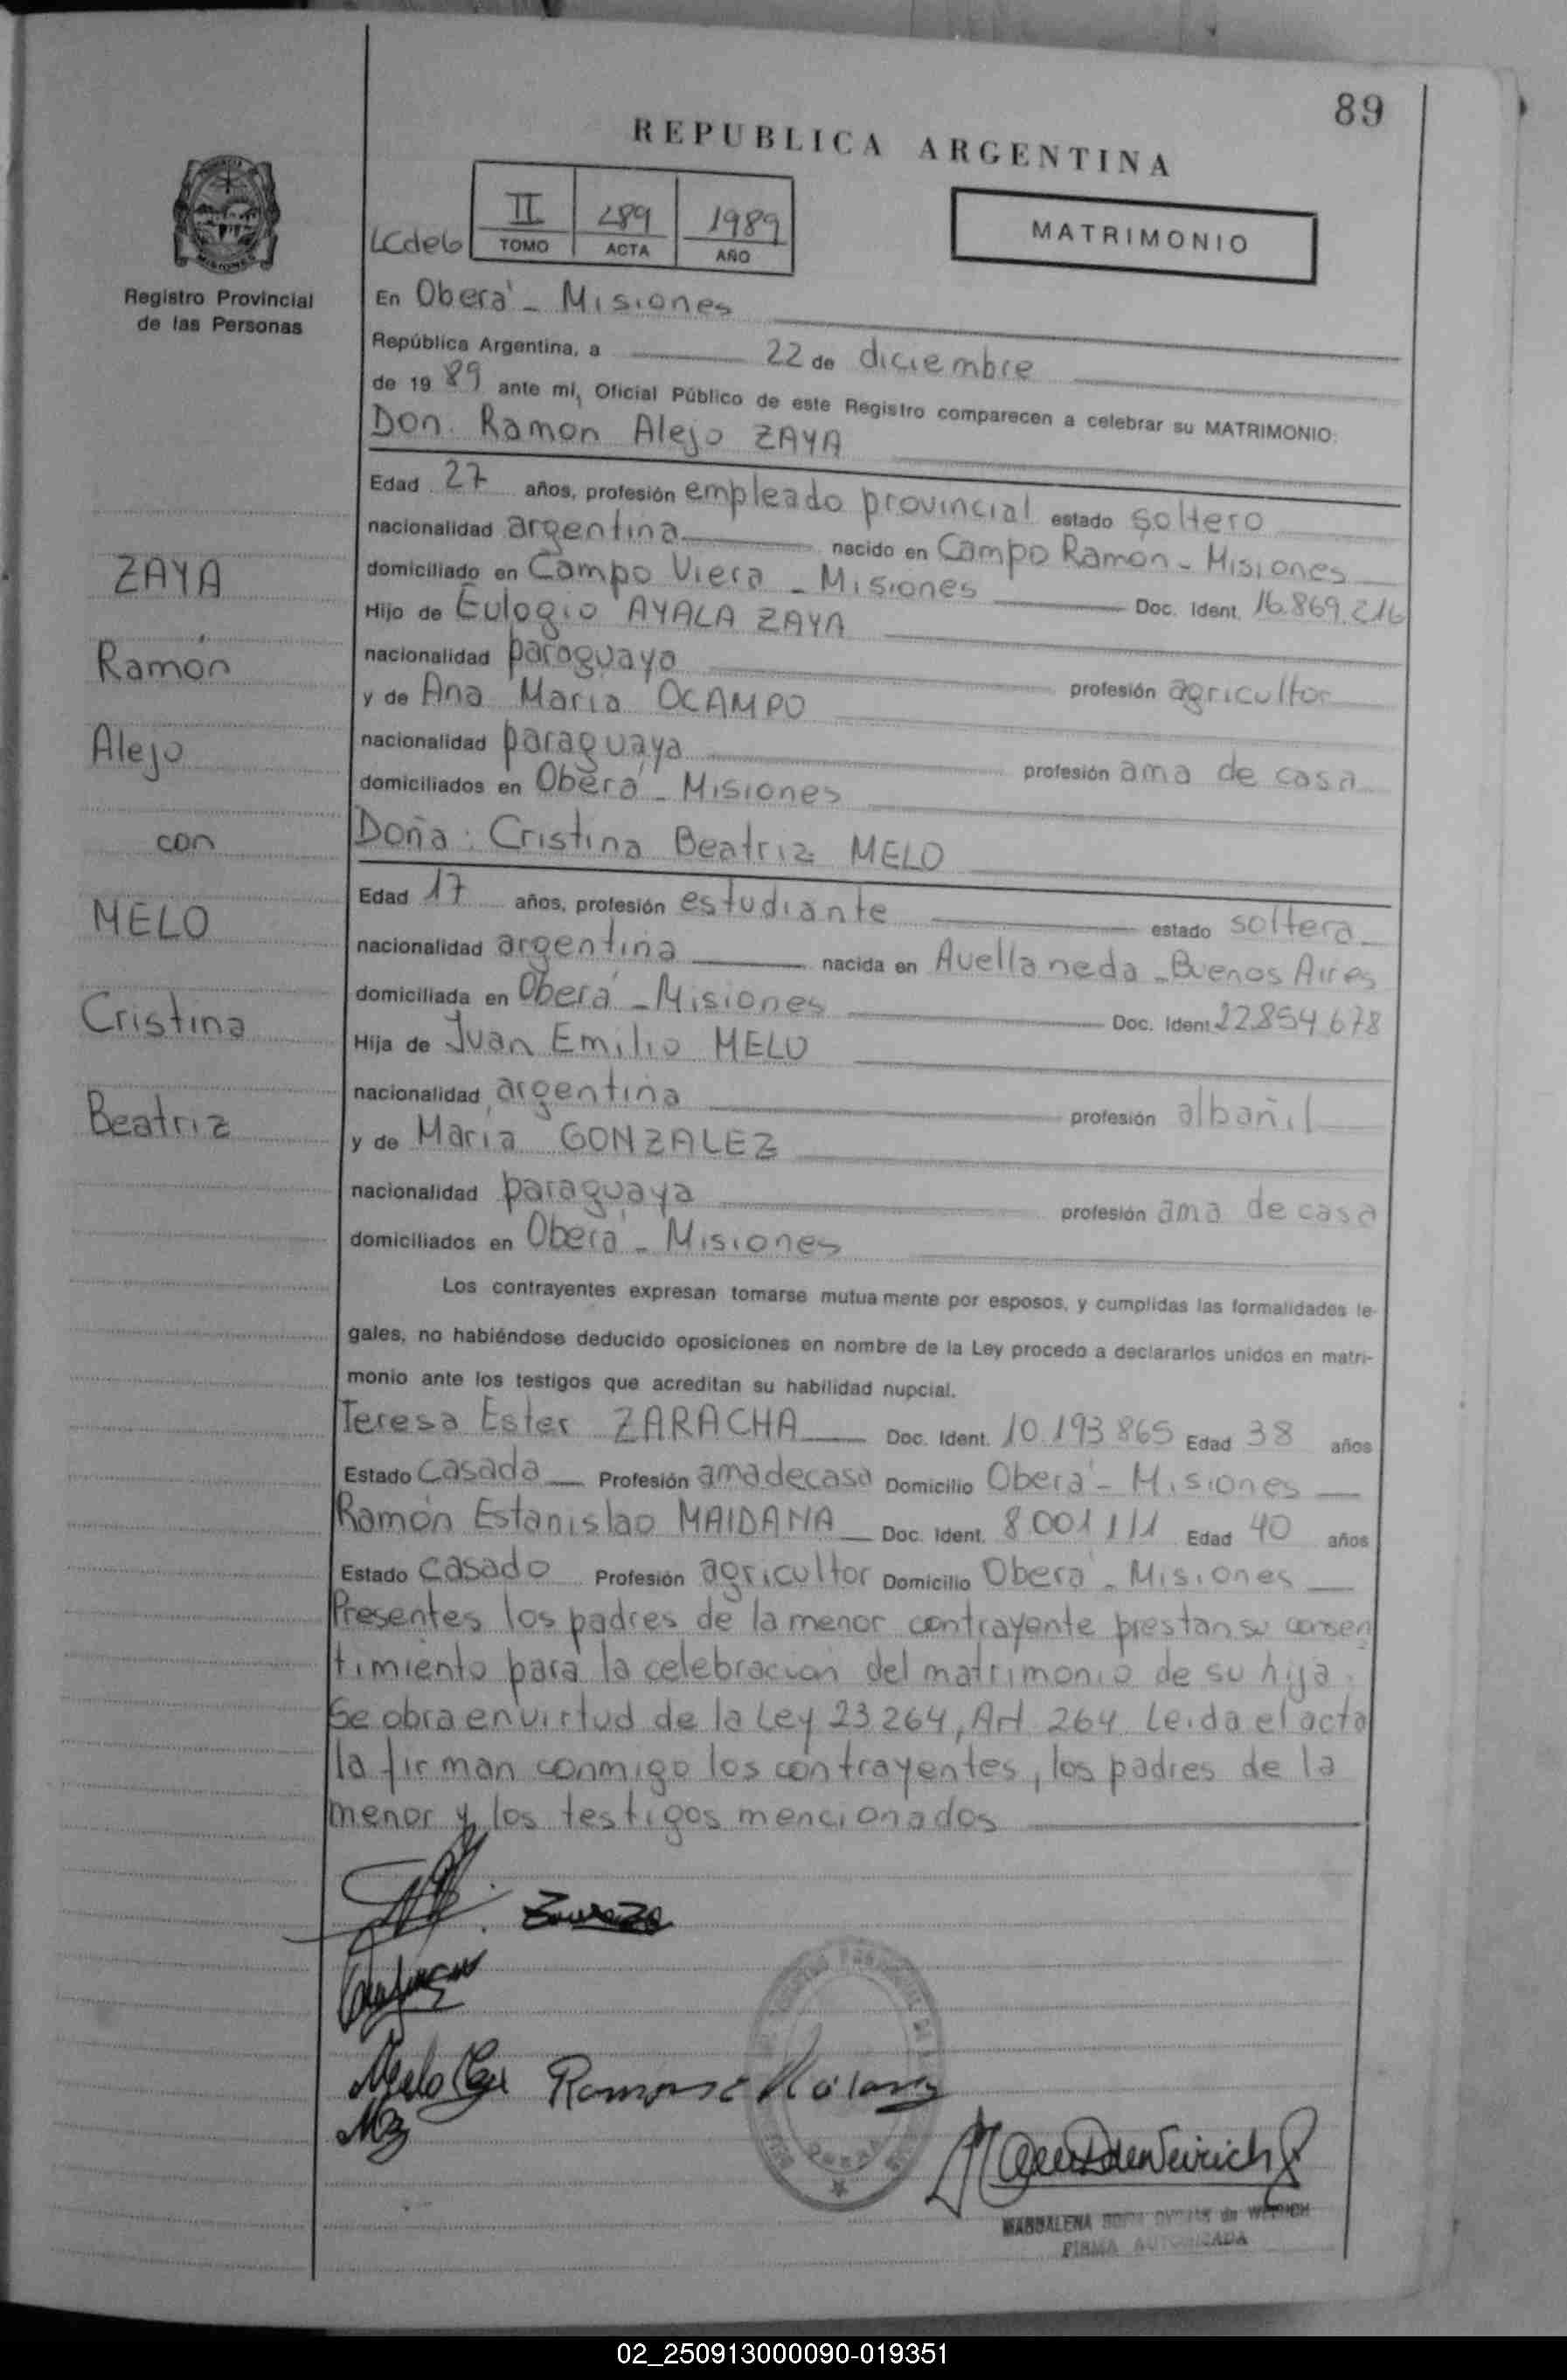 89
REPUBLICA ARGENTINA
II 289 1989
LCdeb TOMO ACTA AÑO
MATRIMONIO
MISIONES
Registro Provincial
de las Personas
En Oberá - Misiones
República Argentina, a 22 de diciembre
de 19 89 ante mí, Oficial Público de este Registro comparecen a celebrar su MATRIMONIO:
Don. Ramon Alejo ZAYA
Edad 27 años, profesión empleado provincial estado soltero
nacionalidad argentina nacido en Campo Ramon - Misiones
domiciliado en Campo Viera - Misiones Doc. Ident. 16.869.216
Hijo de Eulogio AYALA ZAYA
nacionalidad paraguayo profesión agricultor
y de Ana Maria OCAMPO
nacionalidad paraguaya profesión ama de casa
domiciliados en Oberá - Misiones
Doña: Cristina Beatriz MELO
Edad 17 años, profesión estudiante estado soltera
nacionalidad argentina nacida en Avellaneda - Buenos Aires
domiciliada en Oberá - Misiones Doc. Ident. 22.854.678
Hija de Juan Emilio MELO
nacionalidad argentina profesión albañil
y de Maria GONZALEZ
nacionalidad paraguaya profesión ama de casa
domiciliados en Oberá - Misiones
ZAYA
Ramón
Alejo
con
MELO
Cristina
Beatriz
Los contrayentes expresan tomarse mutua mente por esposos, y cumplidas las formalidades le-
gales, no habiéndose deducido oposiciones en nombre de la Ley procedo a declararlos unidos en matri-
monio ante los testigos que acreditan su habilidad nupcial.
Teresa Ester ZARACHA Doc. Ident. 10.193.865 Edad 38 años
Estado Casada Profesión ama de casa Domicilio Oberá - Misiones
Ramón Estanislao MAIDANA Doc. Ident. 8001111 Edad 40 años
Estado Casado Profesión agricultor Domicilio Oberá - Misiones
Presentes los padres de la menor contrayente prestan su consen
timiento para la celebracion del matrimonio de su hija.
Se obra en virtud de la Ley 23264, Art 264 Leida el acta
la firman conmigo los contrayentes, los padres de la
menor y los testigos mencionados
Melo
MAGDALENA de WEIRICH
FIRMA AUTORIZADA
02_250913000090-019351